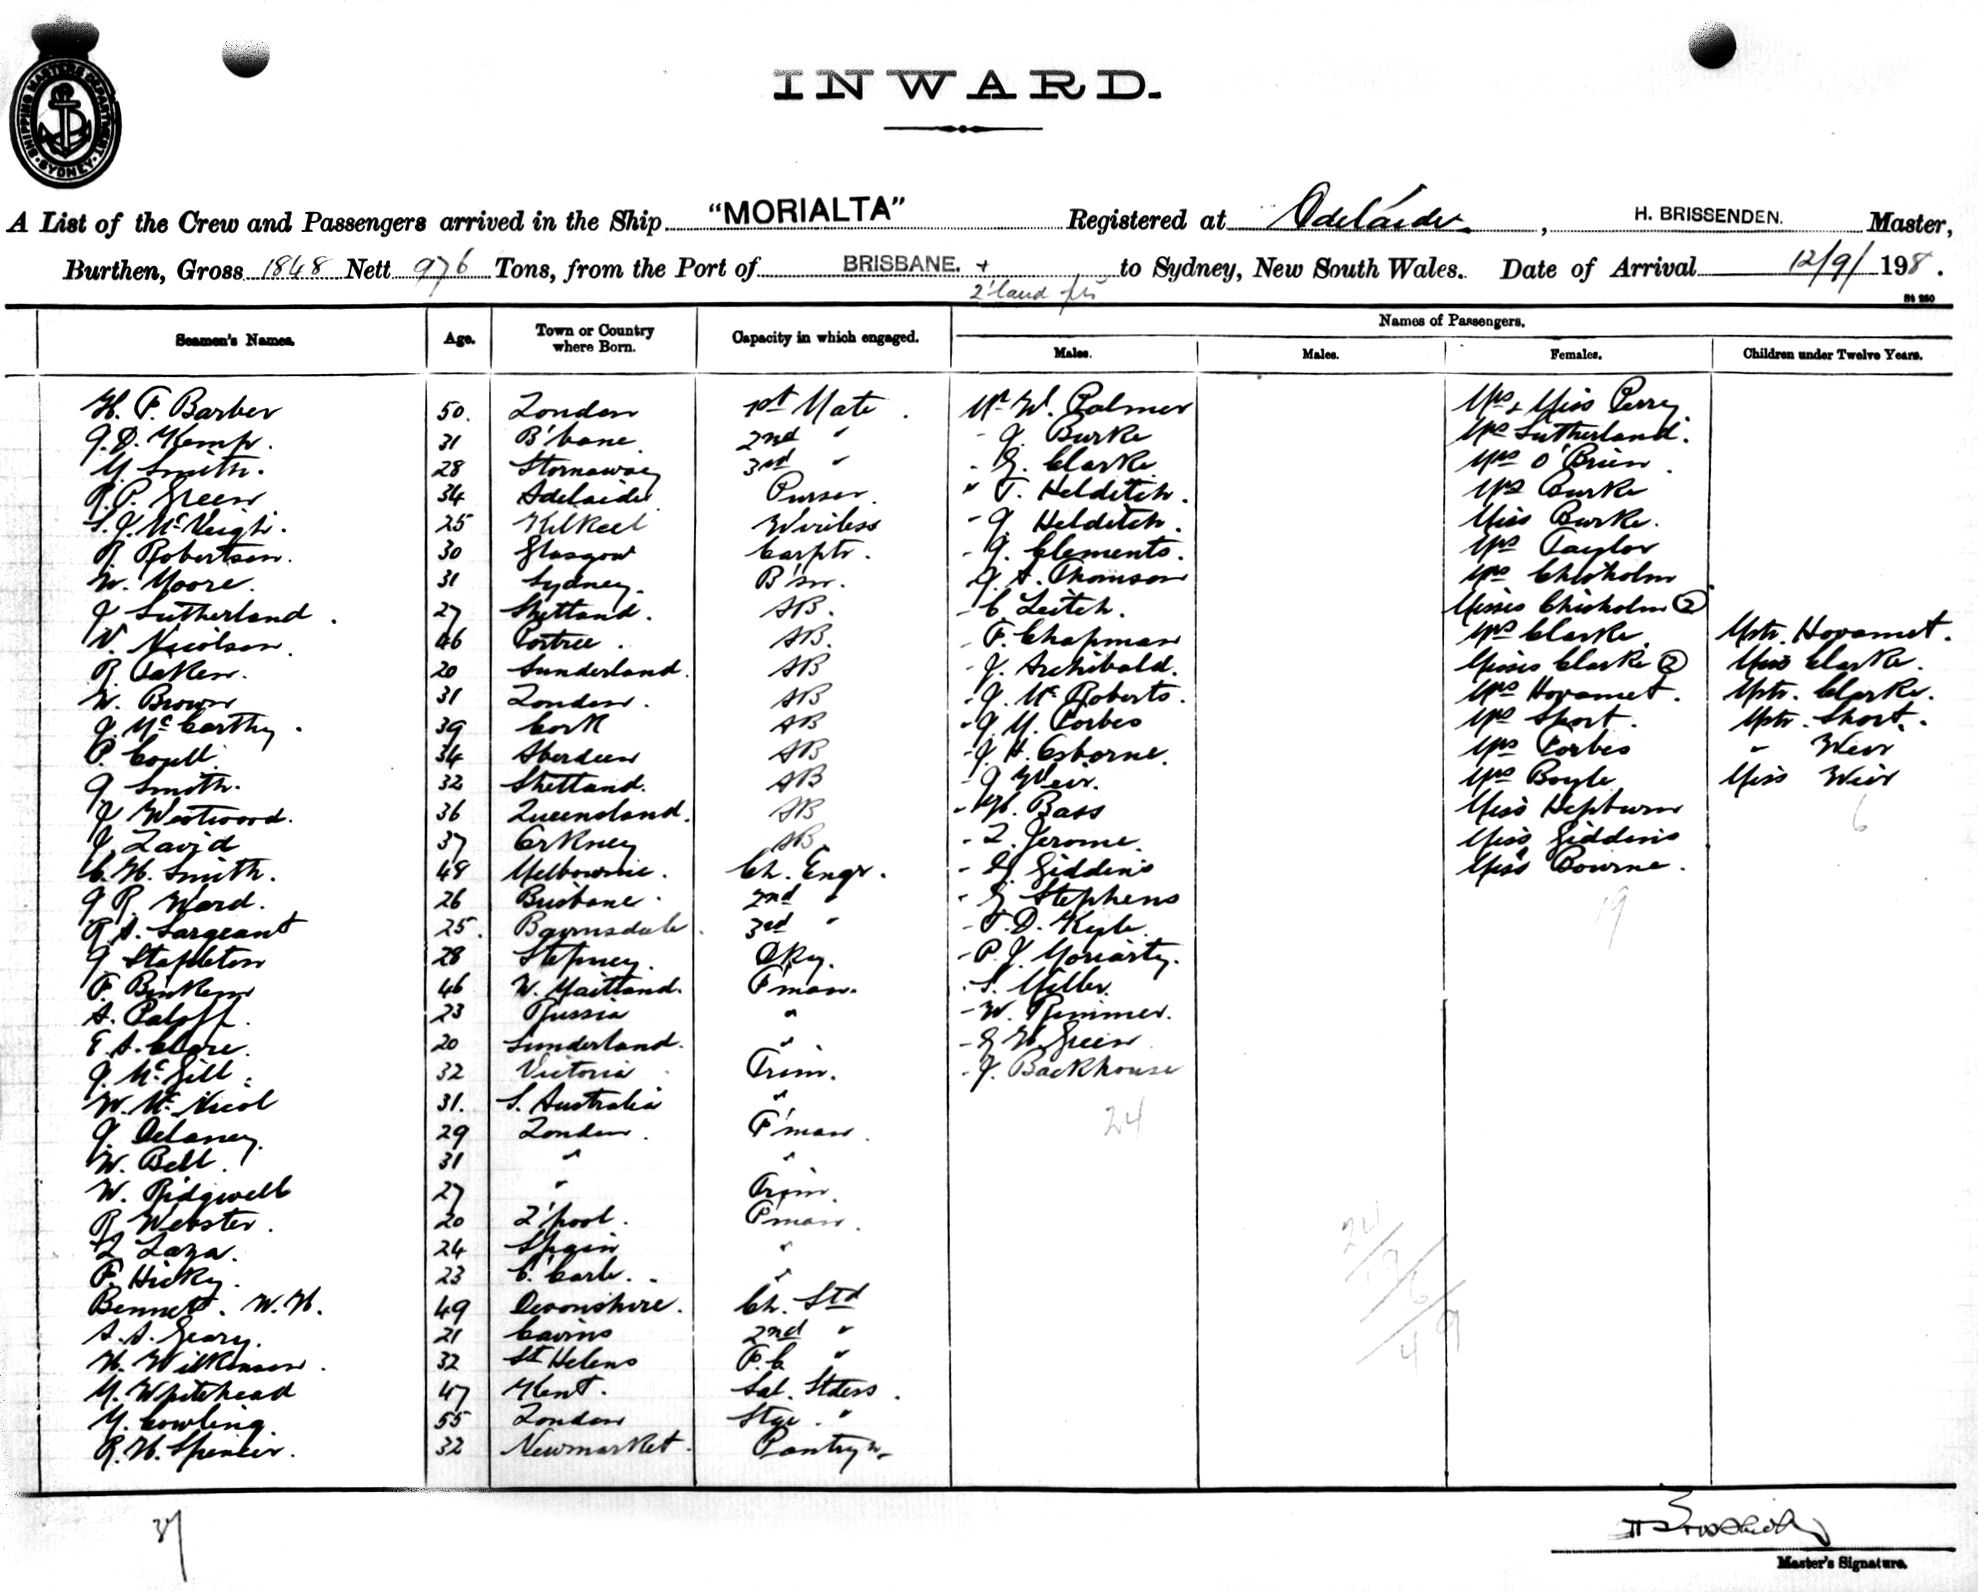 SHIPPING MASTERS DEPARTMENT. SYDNEY.
INWARD.
A List of the Crew and Passengers arrived in the Ship "MORIALTA" Registered at Adelaide, H. BRISSENDEN. Master,
Burthen, Gross 1848 Nett 976 Tons, from the Port of BRISBANE. + to Sydney, New South Wales. Date of Arrival 12/9/1918.
Q'land pts
St 250
Names of Passengers.
Seamen's Names. Age. Town or Country where Born. Capacity in which engaged. Males. Males. Females. Children under Twelve Years.
H. F. Barber 50. London 1st Mate. Mr W. Palmer Mrs & Miss Perry
J. D. Kemp. 31 B'bane 2nd " - J. Burke Mrs Sutherland.
M. Smith. 28 Stornaway 3rd " - G. Clarke Mrs O'Brien.
R. P. Green 34 Adelaide Purser. " T. Helditch. Mrs Burke
S. J. McVeigh. 25 Kilkeel Wireless - J. Helditch. Miss Burke.
R Robertson. 30 Glasgow Carptr. - J. Clements. Mrs Taylor
W. Moore. 31 Sydney. B'sn. - J. A. Thomson Mrs Chisholm
J Sutherland. 27 Shetland. AB. - C Leitch. Misses Chisholm (2)
N. Nicolson. 46 Portree. AB. - F. Chapman Mrs Clarke Mstr. Hovamet.
R Oaken. 20 Sunderland. AB - J. Archibald. Misses Clarke (2) Miss Clarke.
W. Brown 31 London. AB - J. McRoberts. Mrs Hovamet. Mstr. Clarke.
J. McCarthy. 39 Cork AB - J. M. Forbes Mrs Short. Mstr. Short.
P. Coull 34 Aberdeen AB - J. H. Osborne. Mrs Forbes " Weir
J Smith. 32 Shetland. AB - J Weir. Mrs Boyle Miss Weir
J Westwood. 36 Queensland. AB - H. Bass Miss Hepburn 6
J. David 37 Orkney AB - L. Jerome. Miss Giddins
C. H. Smith. 48 Melbourne. Ch. Engr. - G Giddins Miss Bourne.
J R. Ward. 26 Brisbane. 2nd " - G Stephens 19
R. A. Sargeant 25. Bairnsdale. 3rd " - T. D. Kyle
J Stapleton 28 Stepney. Dky. - P. J. Moriarty.
F. 46 W. Maitland. F'man. - S. Miller.
A. Paloff. 23 Russia " - W. Rimmer.
E. A. Clare. 20 Sunderland. " - G H. Green
J. McGill. 32 Victoria Trim. - J. Backhouse
W. McNicol 31. S. Australia " 24
J. Delaney. 29 London. F'man.
W. Bell. 31 " "
W. Ridgwell 27 " Trim.
R Webster. 20 L'pool. F'man.
L Laza. 24 Spain "
F. Hicky. 23 "
Bennett. W. H. 49 Devonshire. Ch. Std
A. A. Geary. 21 Cairns 2nd "
H. Wilkinson. 32 St Helens F.C. "
M. Whitehead 47 Kent. Sal. Stdess.
M. Cowling 55 London Stge. "
R. H. Spencer. 32 Newmarket. Pantryn.
37
24/19/6/49
Master's Signature.